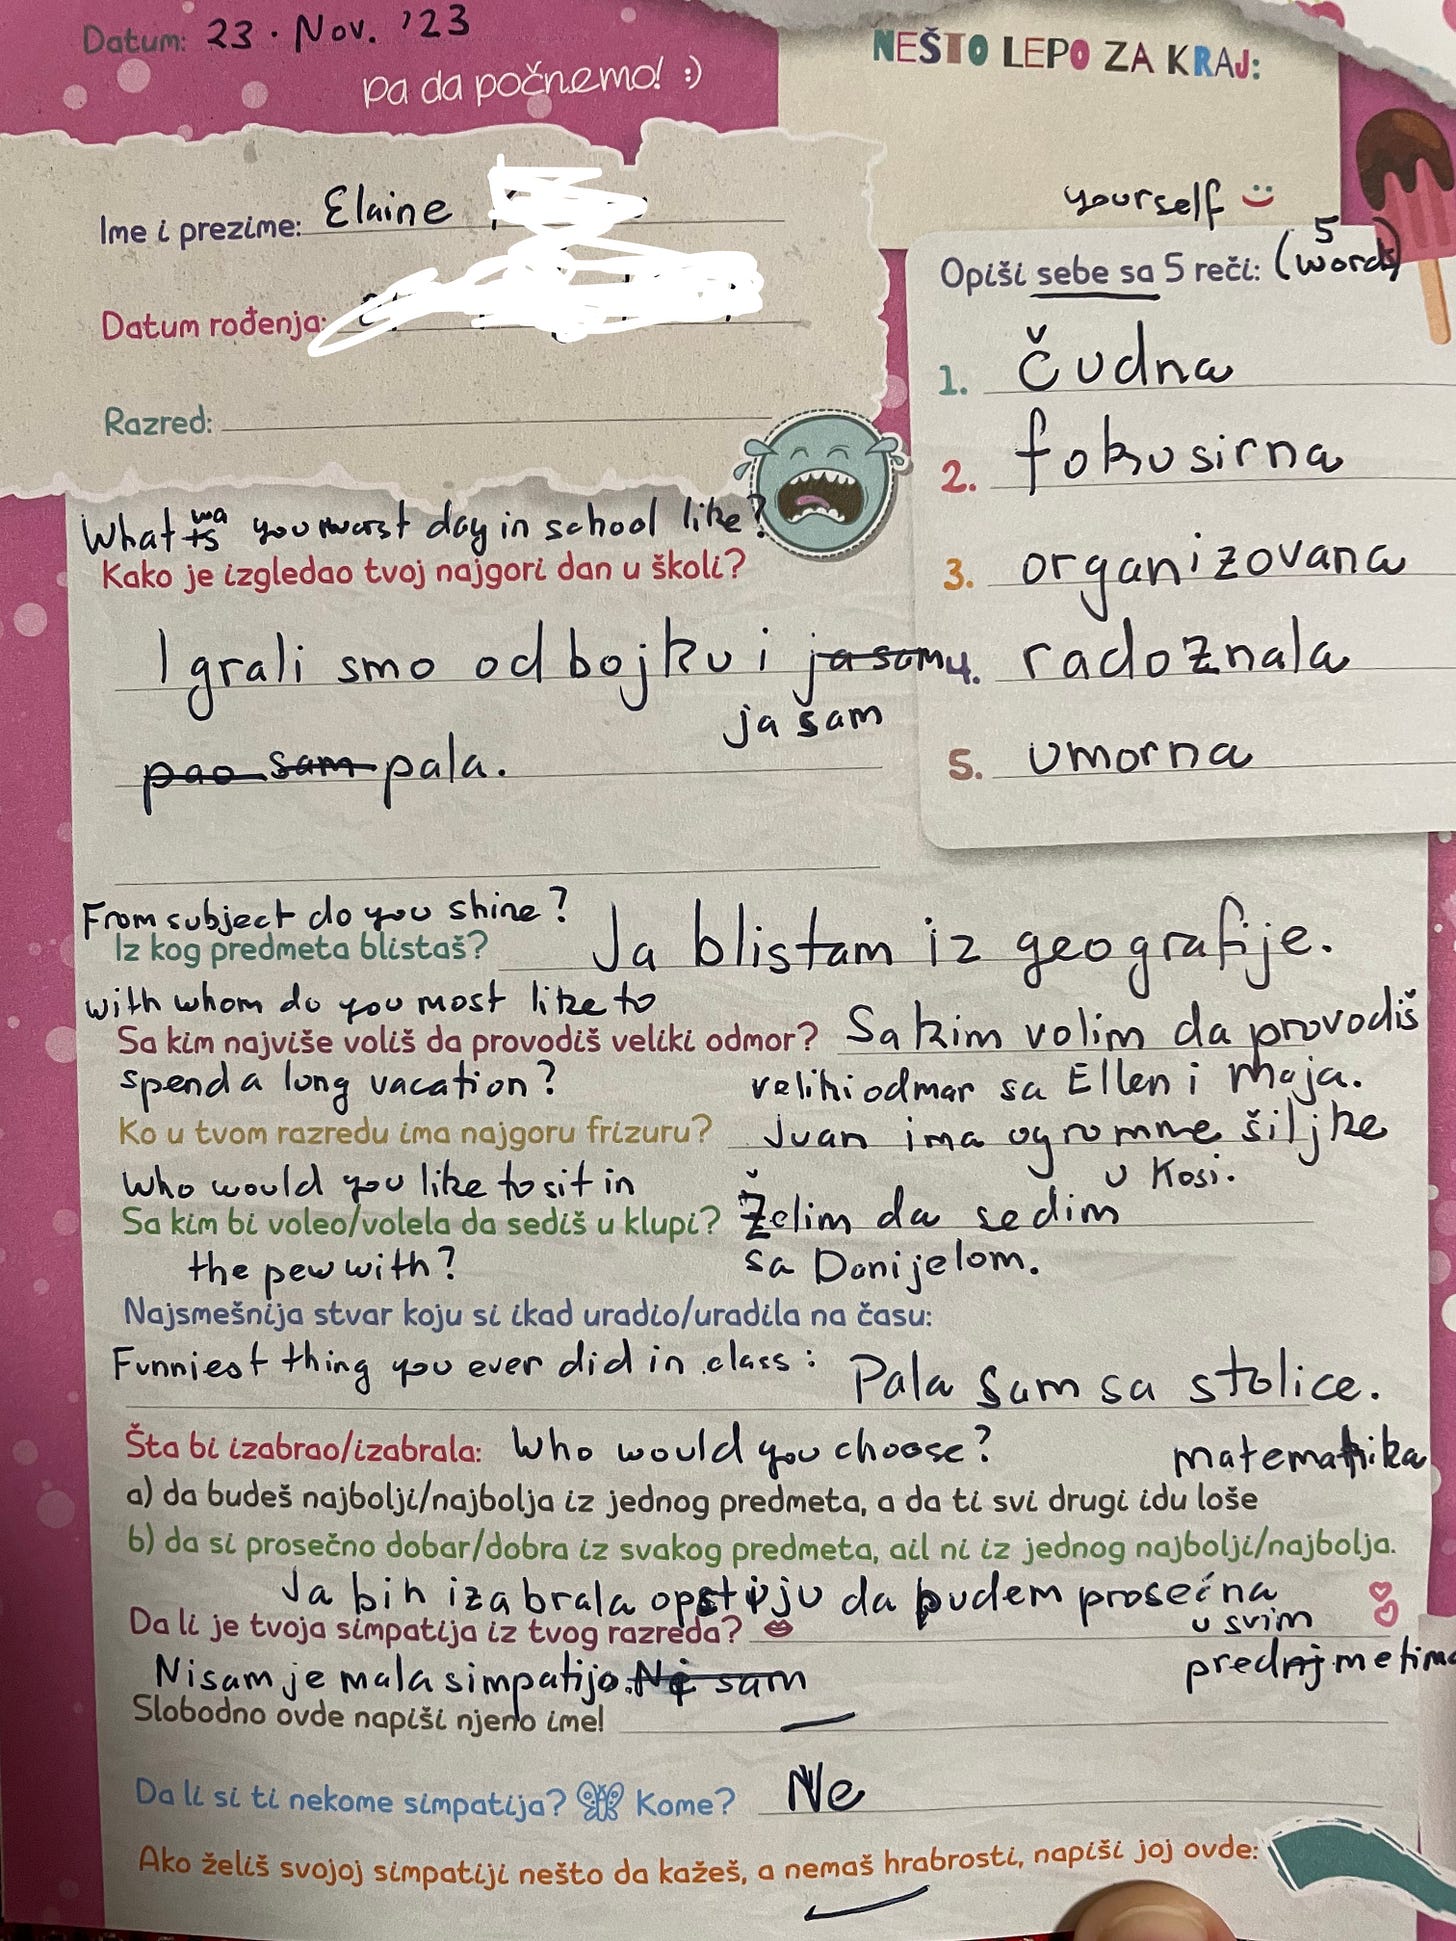 Datum: 23. Nov. '23
pa da počnemo! :)
NEŠTO LEPO ZA KRAJ:
Ime i prezime: Elaine
Datum rođenja:
Razred:
yourself
Opiši sebe sa 5 reči: (5 words)
1. čudna
2. fokusirna
3. organizovana
4. radoznala
5. umorna
What wa your worst day in school like?
Kako je izgledao tvoj najgori dan u školi?
Igrali smo odbojku i ja sam
ja sam
pao sam pala.
From subject do you shine?
Iz kog predmeta blistaš? Ja blistam iz geografije.
with whom do you most like to
Sa kim najviše voliš da provodiš veliki odmor? Sa kim volim da provodiš
spend a long vacation? veliki odmar sa Ellen i Maja.
Ko u tvom razredu ima najgoru frizuru? Ivan ima ogromne šiljke
u Kosi.
Who would you like to sit in
Sa kim bi voleo/volela da sediš u klupi? Želim da sedim
the pew with? sa Danijelom.
Najsmešnija stvar koju si ikad uradio/uradila na času:
Funniest thing you ever did in class: Pala sam sa stolice.
Šta bi izabrao/izabrala: Who would you choose? matematika
a) da budeš najbolji/najbolja iz jednog predmeta, a da ti svi drugi idu loše
b) da si prosečno dobar/dobra iz svakog predmeta, ail ni iz jednog najbolji/najbolja.
Ja bih izabrala opstiju da budem prosećna
u svim
Da li je tvoja simpatija iz tvog razreda?
Nisam je mala simpatijo. Ne sam
Slobodno ovde napiši njeno ime!
Da li si ti nekome simpatija? Kome? Ne
Ako želiš svojoj simpatiji nešto da kažeš, a nemaš hrabrosti, napiši joj ovde: